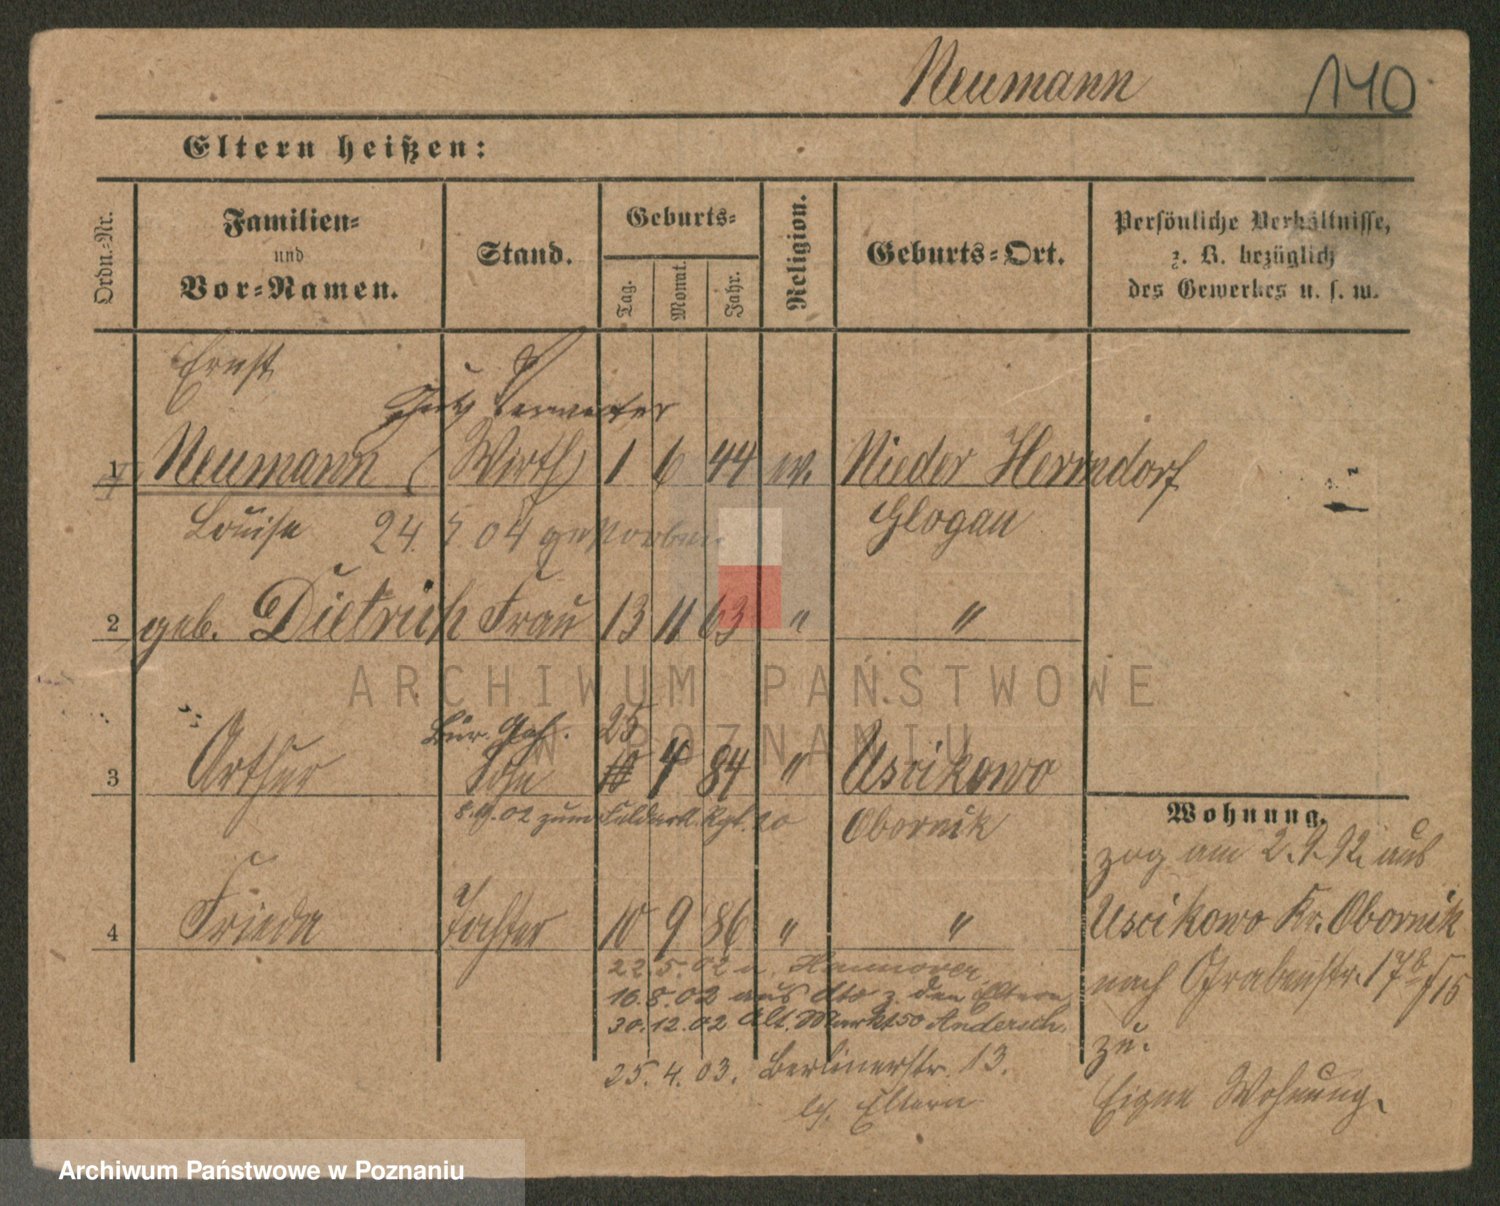 Neumann 140
Eltern heißen:
Ordn.-Nr.
Familien-
und
Vor-Namen.
Stand.
Geburts-
Tag.
Monat.
Jahr.
Religion.
Geburts-Ort.
Persönliche Verhältnisse,
z. B. bezüglich
des Gewerkes u. s. w.
Ernst
1 Neumann (Wirth) 1 6 44 ev. Nieder Herrndorf
Louise 24. 5 04 gestorben. Glogau
2 geb. Dietrich Frau 13 11 63 " "
ARCHIWUM PAŃSTWOWE
W POZNANIU
Bür. Geh. 25
3 Arthur Sohn 10 4 84 " Uscikowo
8.9.02 zum Feldart. Rgt. 20 Obornik
4 Frieda Tochter 10 9 86 " "
22.5.02 n. Hannover
16.8.02 aus dto z. den Eltern
30.12.02 Alt. Markt 50 Andersch.
25.4.03. Berlinerstr. 13.
Eltern
Wohnung.
zog am 2.9.92 aus
Uscikowo Kr. Obornik
nach Grabenstr. 17
zu.
Eigne Wohnung.
Archiwum Państwowe w Poznaniu